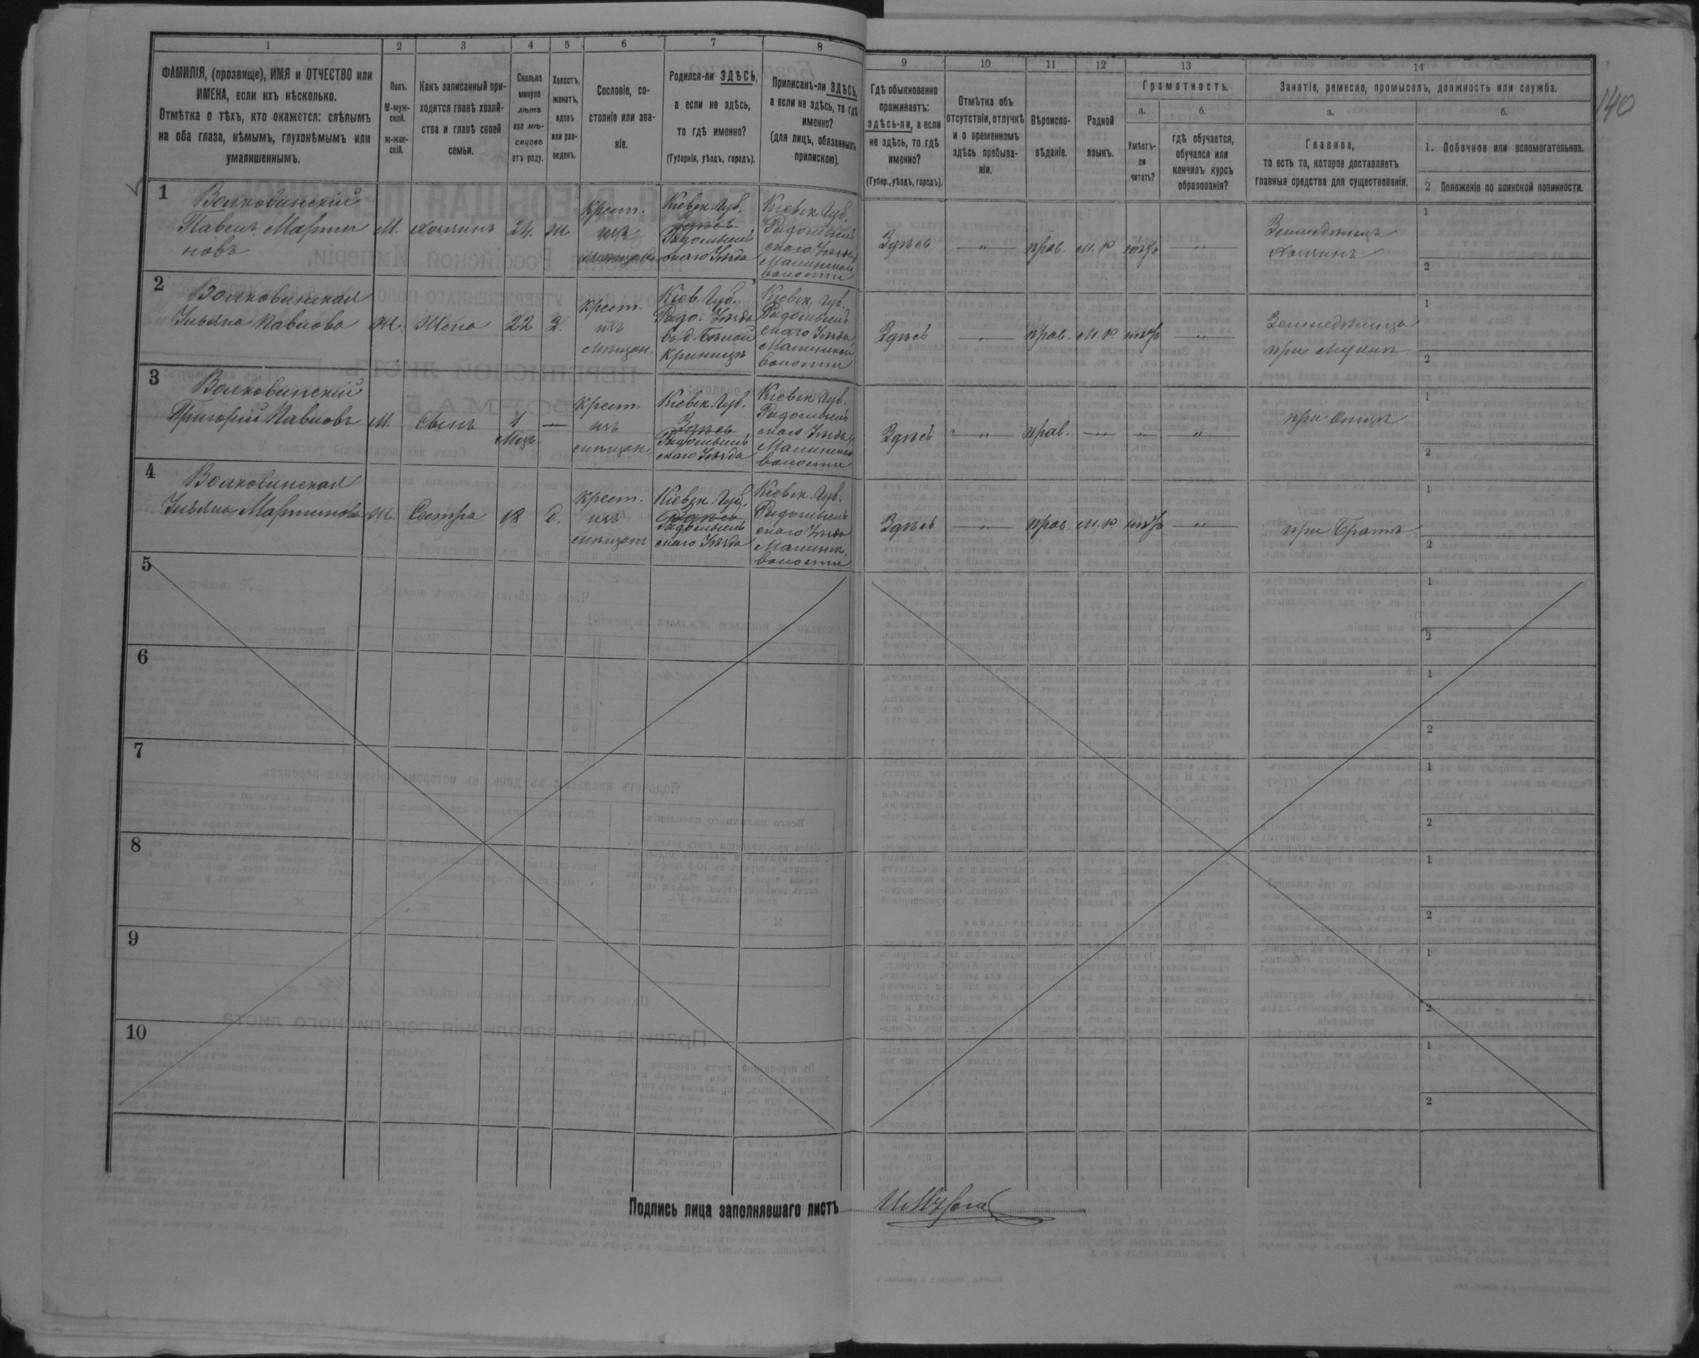 1 2 3 4 5 6 7 8
ФАМИЛІЯ, (прозвище), ИМЯ и ОТЧЕСТВО или ИМЕНА, если ихъ нѣсколько.
Отмѣтка о тѣхъ, кто окажется: слѣпымъ на оба глаза, нѣмымъ, глухонѣмымъ или умалишеннымъ.
Полъ.
М-муж-
ской.
ж-жен-
скій.
Какъ записанный при-
ходится главѣ хозяй-
ства и главѣ своей
семьи.
Сколько
минуло
лѣтъ
или мѣ-
сяцевъ
отъ роду.
Холостъ,
женатъ,
вдовъ
или раз-
веденъ.
Сословіе, со-
стояніе или зва-
ніе.
Родился-ли ЗДѢСЬ,
а если не здѣсь,
то гдѣ именно?
(Губернія, уѣздъ, городъ).
Приписанъ-ли ЗДѢСЬ,
а если не здѣсь, то гдѣ
именно?
(для лицъ, обязанныхъ
припискою).
9 10 11 12 13 14
Гдѣ обыкновенно
проживаетъ:
здѣсь-ли, а если
не здѣсь, то гдѣ
именно?
(Губер., уѣздъ, городъ).
Отмѣтка объ
отсутствіи, отлучкѣ
и о временномъ
здѣсь пребыва-
ніи.
Вѣроиспо-
вѣданіе.
Родной
языкъ.
Грамотность.
а. б.
Умѣетъ-
ли
читать?
гдѣ обучается,
обучался или
кончилъ курсъ
образованія?
Занятіе, ремесло, промыселъ, должность или служба.
а. б.
Главное,
то есть то, которое доставляетъ
главныя средства для существованія.
1. Побочное или вспомогательное.
2 Положеніе по воинской повинности.
140
1
Волковинскій
Павелъ Марти
новъ
М. хозяинъ 24 ж
Крест.
изъ
Кіевск. Губ.
здѣсь
Радомысль
скаго Уѣзда
Кіевск. Губ.
Радомысль
скаго Уѣзда
Малинской
волости
Здѣсь — „ — прав. м. р „
Земледѣлецъ
Хозяинъ
1
2
2
Волковинская
Ульяна Павлова
Ж. Жена 22 З.
Крест.
изъ
мѣщан.
Кіев. Губ.
Радо. Уѣзда
в д. Бѣлой
Криницѣ
Кіевск. Губ.
Радомысль
скаго Уѣзда
Малинской
волости
Здѣсь — „ — прав. м. р „
Земледѣлица
при мужѣ
1
2
3
Волковинскій
Григорій Павловъ
М. Сынъ
Мѣсц. —
Крест.
изъ
мѣщан.
Кіевск. Губ.
Здѣсь
Радомысль
скаго Уѣзда
Кіевск. Губ.
Радомысль
скаго Уѣзда
Малинской
волости
Здѣсь — „ — прав. — „ — „ „
при отцѣ
1
2
4
Волковинская
Ульяна Мартинова
Ж. Сестра 18 д.
крест.
изъ
мѣщан
Кіевск. Губ.
здѣсь
Радомысль
скаго Уѣзда
Кіевск. Губ.
Радомысль
скаго Уѣзда
Малинск.
волости
Здѣсь — „ — прав. м. р „
при братѣ
1
2
5
1
2
6
1
2
7
1
2
8
1
2
9
1
2
10
1
2
Подпись лица заполнявшаго листъ